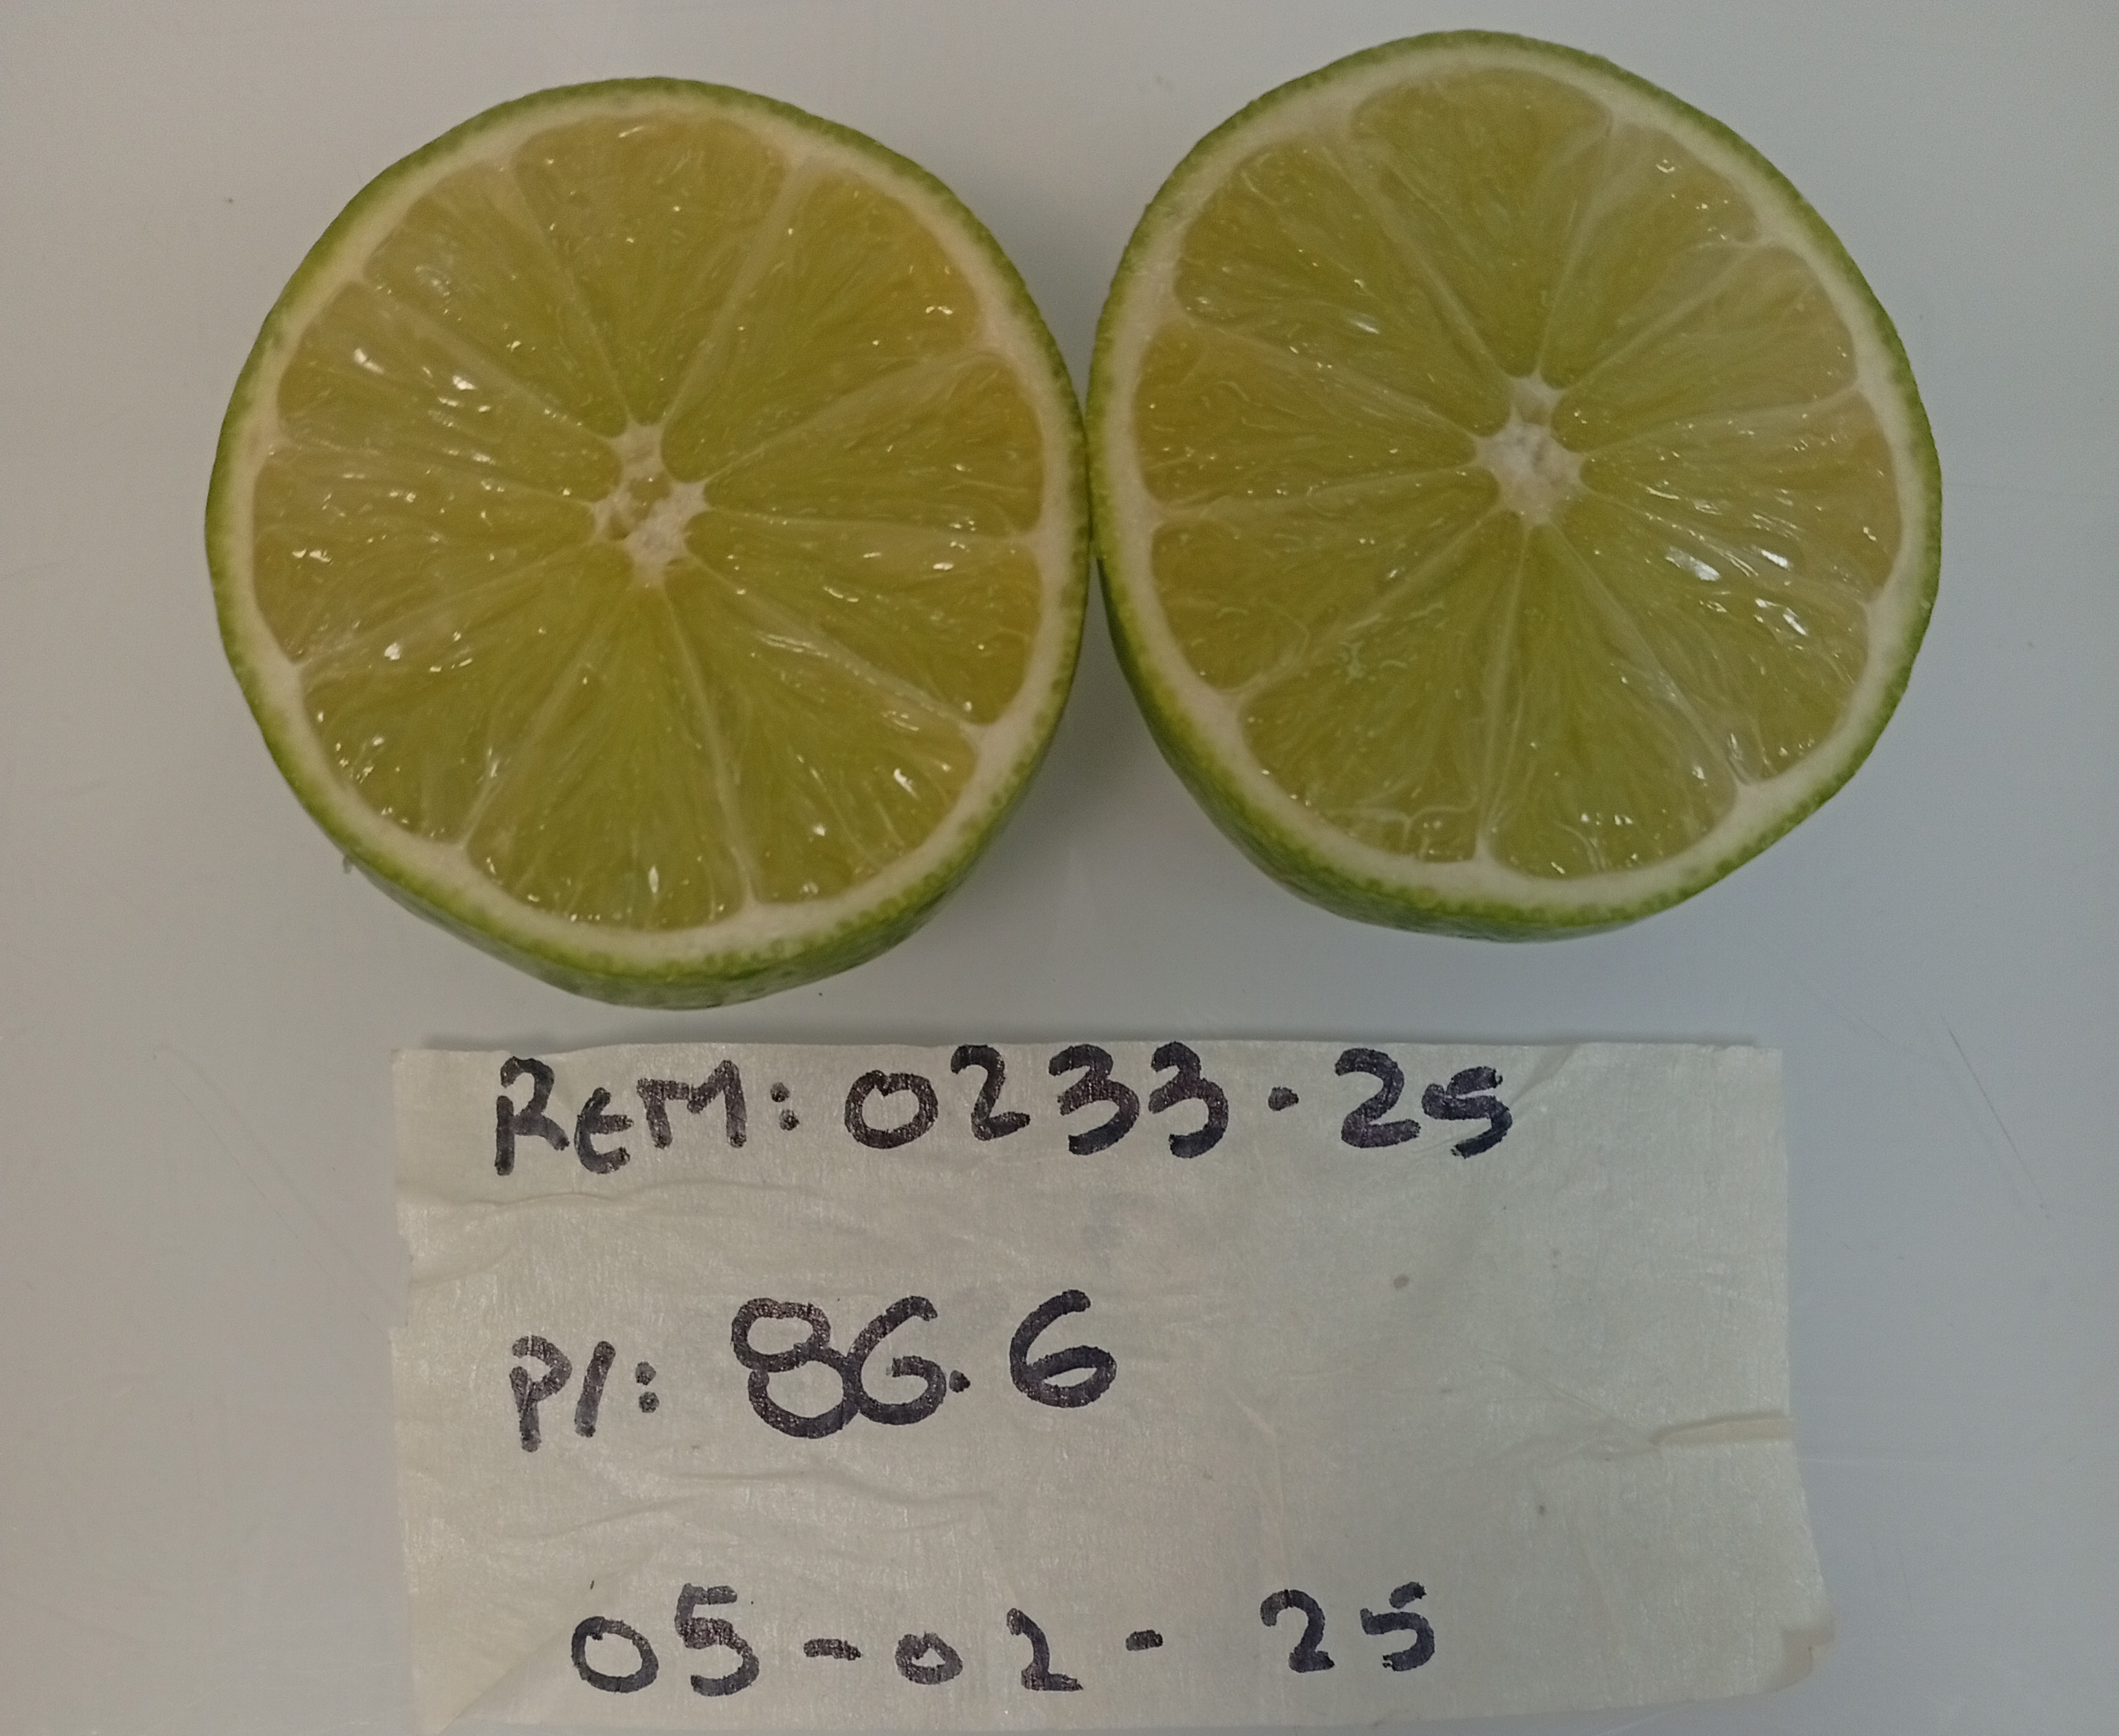 REM: 0233-25
PI: 86.6
05-02-25